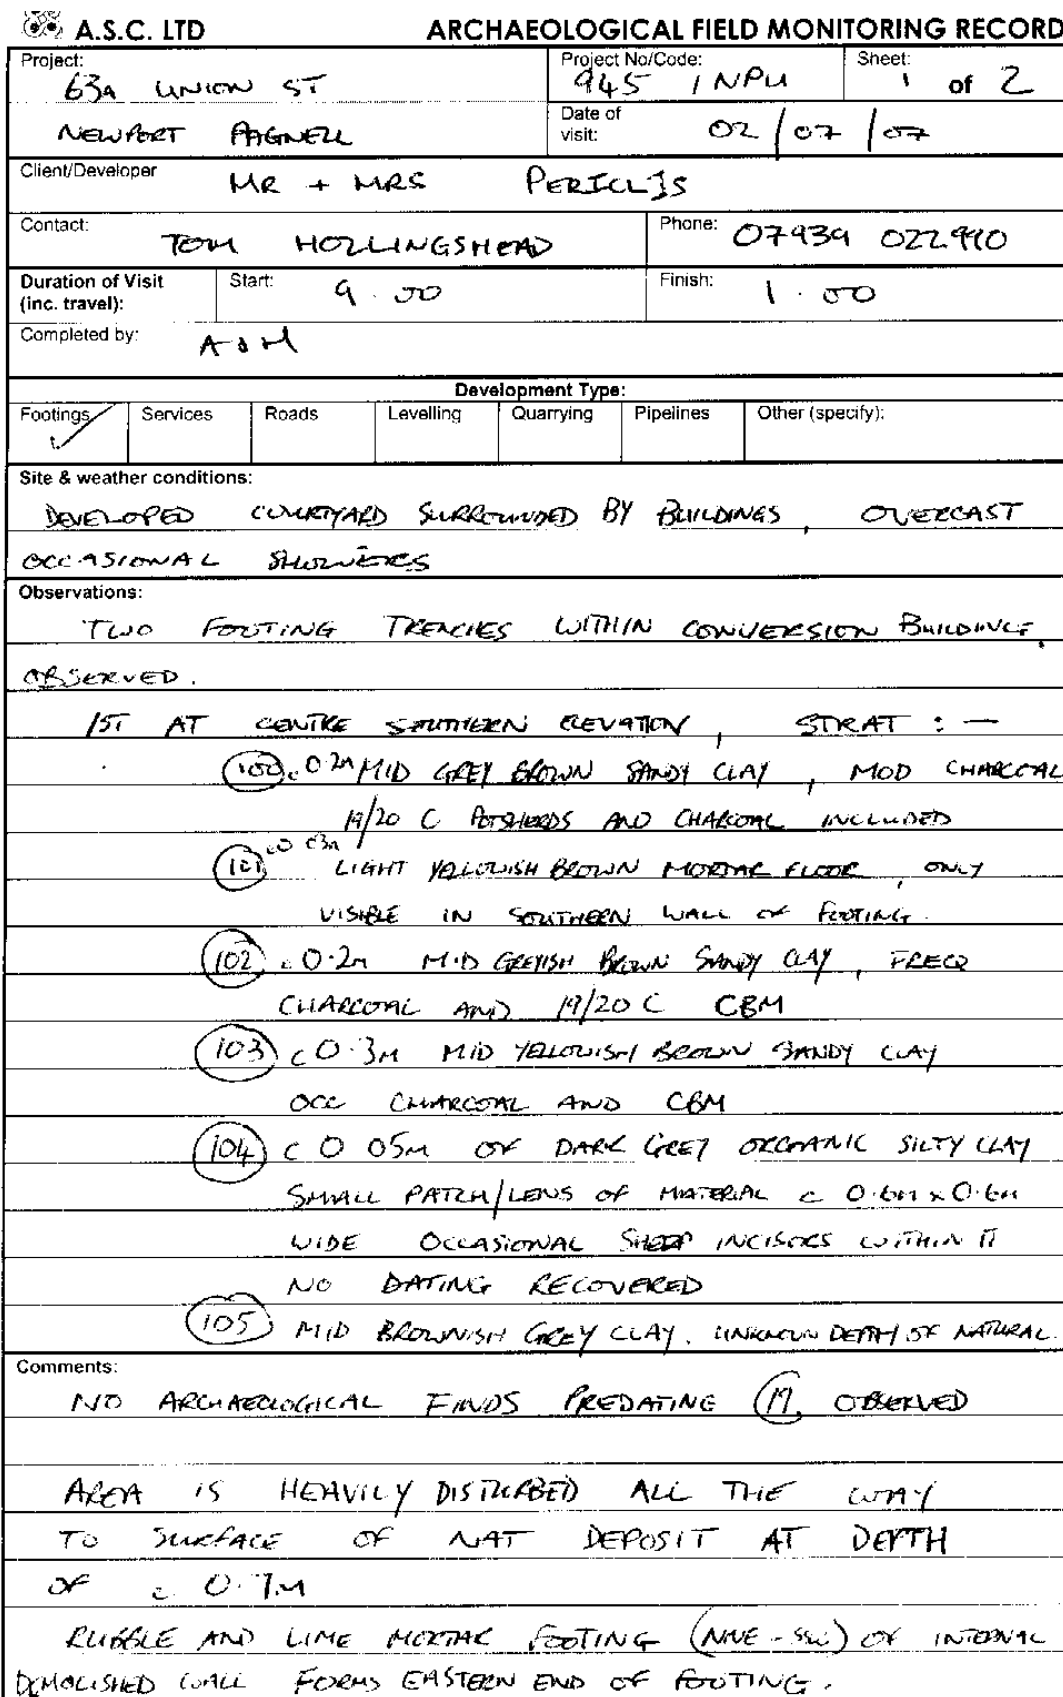 A.S.C. LTD ARCHAEOLOGICAL FIELD MONITORING RECORD
Project: 63A UNION ST
NEWPORT PAGNELL
Project No/Code: 945 / NPU
Sheet: 1 of 2
Date of visit: 02/07/07
Client/Developer MR + MRS PERICLIS
Contact: TOM HOLLINGSHEAD
Phone: 07939 022990
Duration of Visit (inc. travel):
Start: 9.00
Finish: 1.00
Completed by:
Development Type:
Footings Services Roads Levelling Quarrying Pipelines Other (specify):
Site & weather conditions:
DEVELOPED COURTYARD SURROUNDED BY BUILDINGS, OVERCAST
OCCASIONAL SHOWERS
Observations:
TWO FOOTING TRENCHES WITHIN CONVERSION BUILDING
OBSERVED.
1ST AT CENTRE SOUTHERN ELEVATION, STRAT : —
100 c 0.2M MID GREY BROWN SANDY CLAY, MOD CHARCOAL
19/20 C POTSHERDS AND CHARCOAL INCLUDED
101 c0 03m LIGHT YELLOWISH BROWN MORTAR FLOOR, ONLY
VISIBLE IN SOUTHERN WALL OF FOOTING.
102 c 0.2m MID GREYISH BROWN SANDY CLAY, FREQ
CHARCOAL AND 19/20 C CBM
103 c 0.3M MID YELLOWISH BROWN SANDY CLAY
OCC CHARCOAL AND CBM
104 c 0 05M OF DARK GREY ORGANIC SILTY CLAY
SMALL PATCH/LENS OF MATERIAL c 0.6M x 0.6M
WIDE OCCASIONAL SHEEP INCISORS WITHIN IT
NO DATING RECOVERED
105 MID BROWNISH GREY CLAY. UNKNOWN DEPTH OF NATURAL.
Comments:
NO ARCHAEOLOGICAL FINDS PREDATING OBSERVED
AREA IS HEAVILY DISTURBED ALL THE WAY
TO SURFACE OF NAT DEPOSIT AT DEPTH
OF c. 0.7M
RUBBLE AND LIME MORTAR FOOTING (NNE - SSW) OF INTERNAL
DEMOLISHED WALL FORMS EASTERN END OF FOOTING.